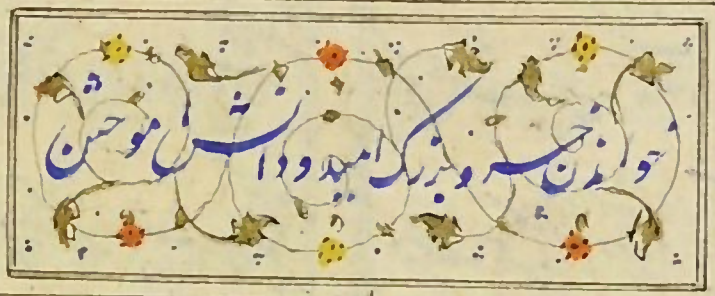 خواندن خسرو بزرگ امید و دانش اموختن